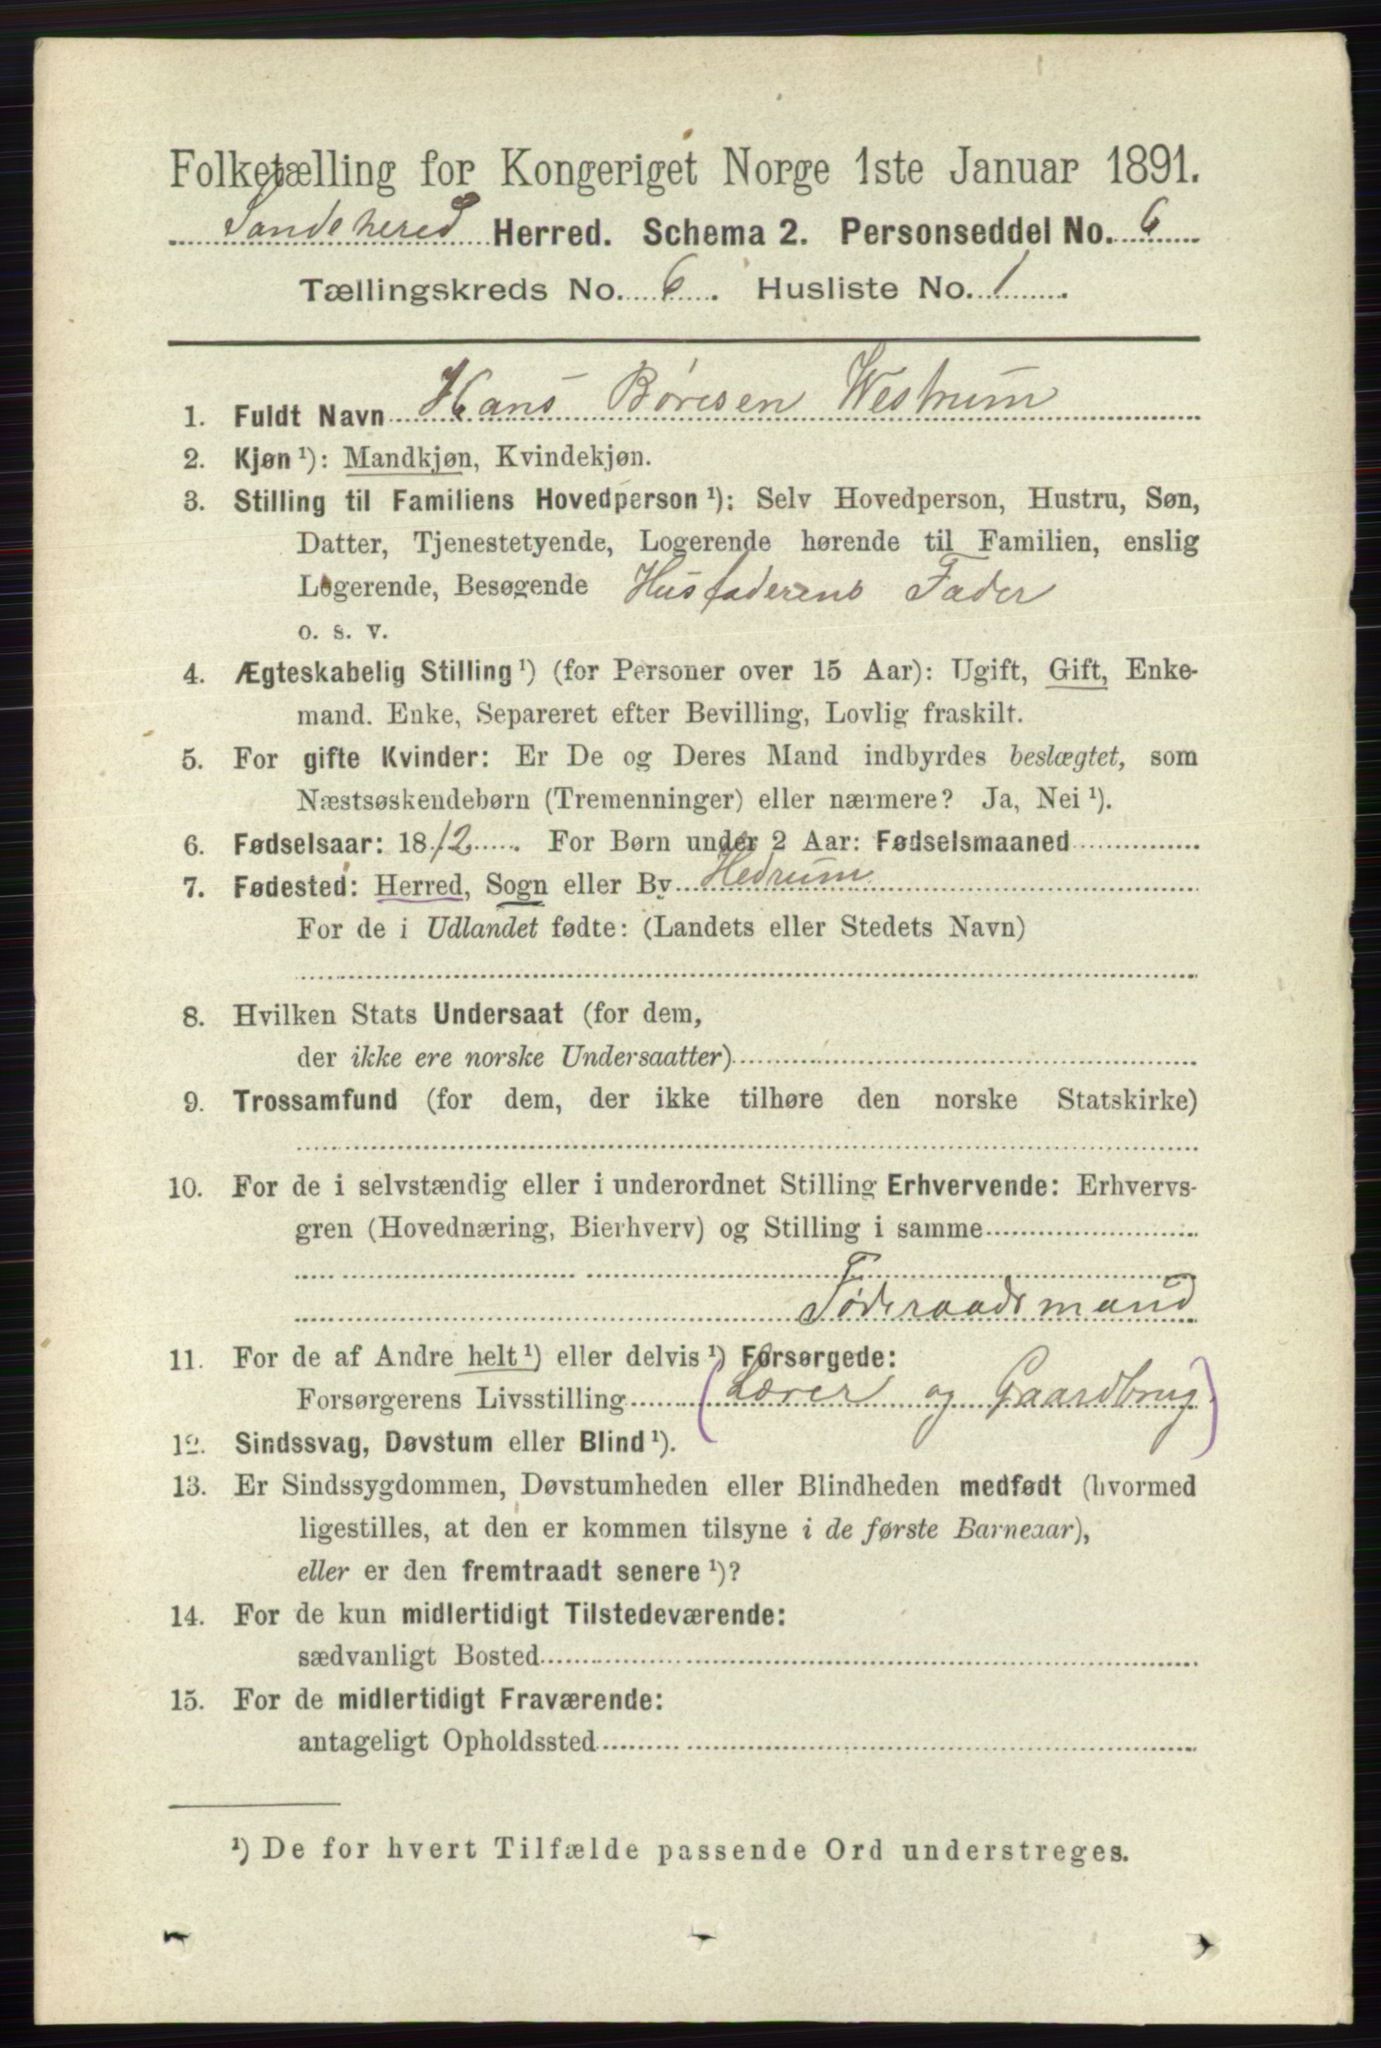 Folketælling for Kongeriget Norge 1ste Januar 1891.
Sandehered Herred. Schema 2. Personseddel No. 6
Tællingskreds No. 6. Husliste No. 1.
1. Fuldt Navn Hans Børesen Westrum
2. Kjøn ¹): Mandkjøn, Kvindekjøn.
3. Stilling til Familiens Hovedperson ¹): Selv Hovedperson, Hustru, Søn,
Datter, Tjenestetyende, Logerende hørende til Familien, enslig
Logerende, Besøgende Husfaderens Fader
o. s. v.
4. Ægteskabelig Stilling ¹) (for Personer over 15 Aar): Ugift, Gift, Enke-
mand. Enke, Separeret efter Bevilling, Lovlig fraskilt.
5. For gifte Kvinder: Er De og Deres Mand indbyrdes beslægtet, som
Næstsøskendebørn (Tremenninger) eller nærmere? Ja, Nei ¹).
6. Fødselsaar: 1812. For Børn under 2 Aar: Fødselsmaaned
7. Fødested: Herred, Sogn eller By Hedrum
For de i Udlandet fødte: (Landets eller Stedets Navn)
8. Hvilken Stats Undersaat (for dem,
der ikke ere norske Undersaatter)
9. Trossamfund (for dem, der ikke tilhøre den norske Statskirke)
10. For de i selvstændig eller i underordnet Stilling Erhvervende: Erhvervs-
gren (Hovednæring, Bierhverv) og Stilling i samme
Føderaadsmand
11. For de af Andre helt ¹) eller delvis ¹) Forsørgede:
Forsørgerens Livsstilling (Lærer og Gaardbrug)
12. Sindssvag, Døvstum eller Blind ¹).
13. Er Sindssygdommen, Døvstumheden eller Blindheden medfødt (hvormed
ligestilles, at den er kommen tilsyne i de første Barneaar),
eller er den fremtraadt senere ¹)?
14. For de kun midlertidigt Tilstedeværende:
sædvanligt Bosted
15. For de midlertidigt Fraværende:
antageligt Opholdssted
¹) De for hvert Tilfælde passende Ord understreges.